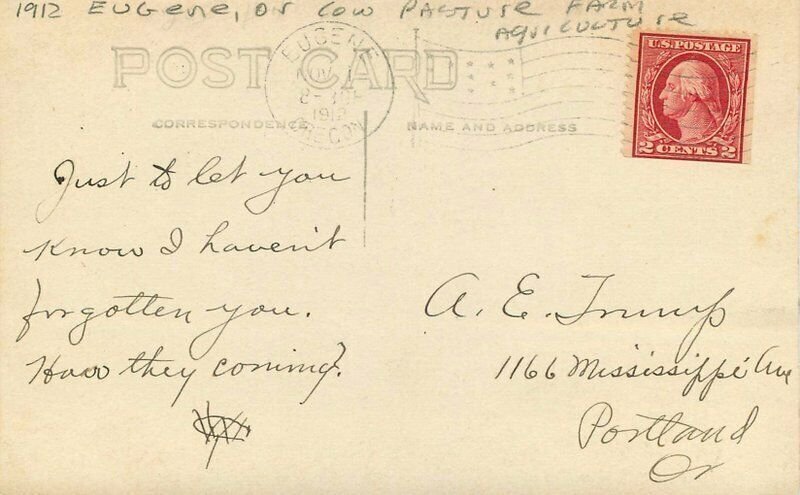 1912 EUGENE, OR COW PASTURE FARM
AGRICULTURE
POST CARD
EUGENE
NOV
8-
1912
OREGON
U.S. POSTAGE
2 CENTS 2
CORRESPONDENCE
NAME AND ADDRESS
Just to let you
know I haven't
forgotten you.
How they coming?
A. E. Trump
1166 Mississippi Ave
Portland
Or